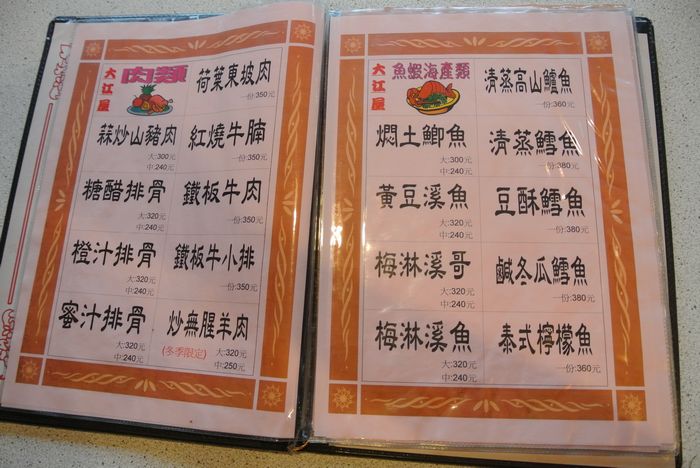 大江屋
肉類
荷葉東坡肉
一份:350元
蒜炒山豬肉
大:300元
中:240元
紅燒牛腩
一份:350元
糖醋排骨
大:320元
中:240元
鐵板牛肉
一份:350元
橙汁排骨
大:320元
中:240元
鐵板牛小排
一份:350元
蜜汁排骨
大:320元
中:240元
炒無腥羊肉
(冬季限定)
大:320元
中:250元
大江屋
魚蝦海產類
清蒸高山鱸魚
一份:360元
燜土鯽魚
大:300元
中:240元
清蒸鱈魚
一份:380元
黃豆溪魚
大:320元
中:240元
豆酥鱈魚
一份:380元
梅淋溪哥
大:320元
中:240元
鹹冬瓜鱈魚
一份:380元
梅淋溪魚
大:320元
中:240元
泰式檸檬魚
一份:360元